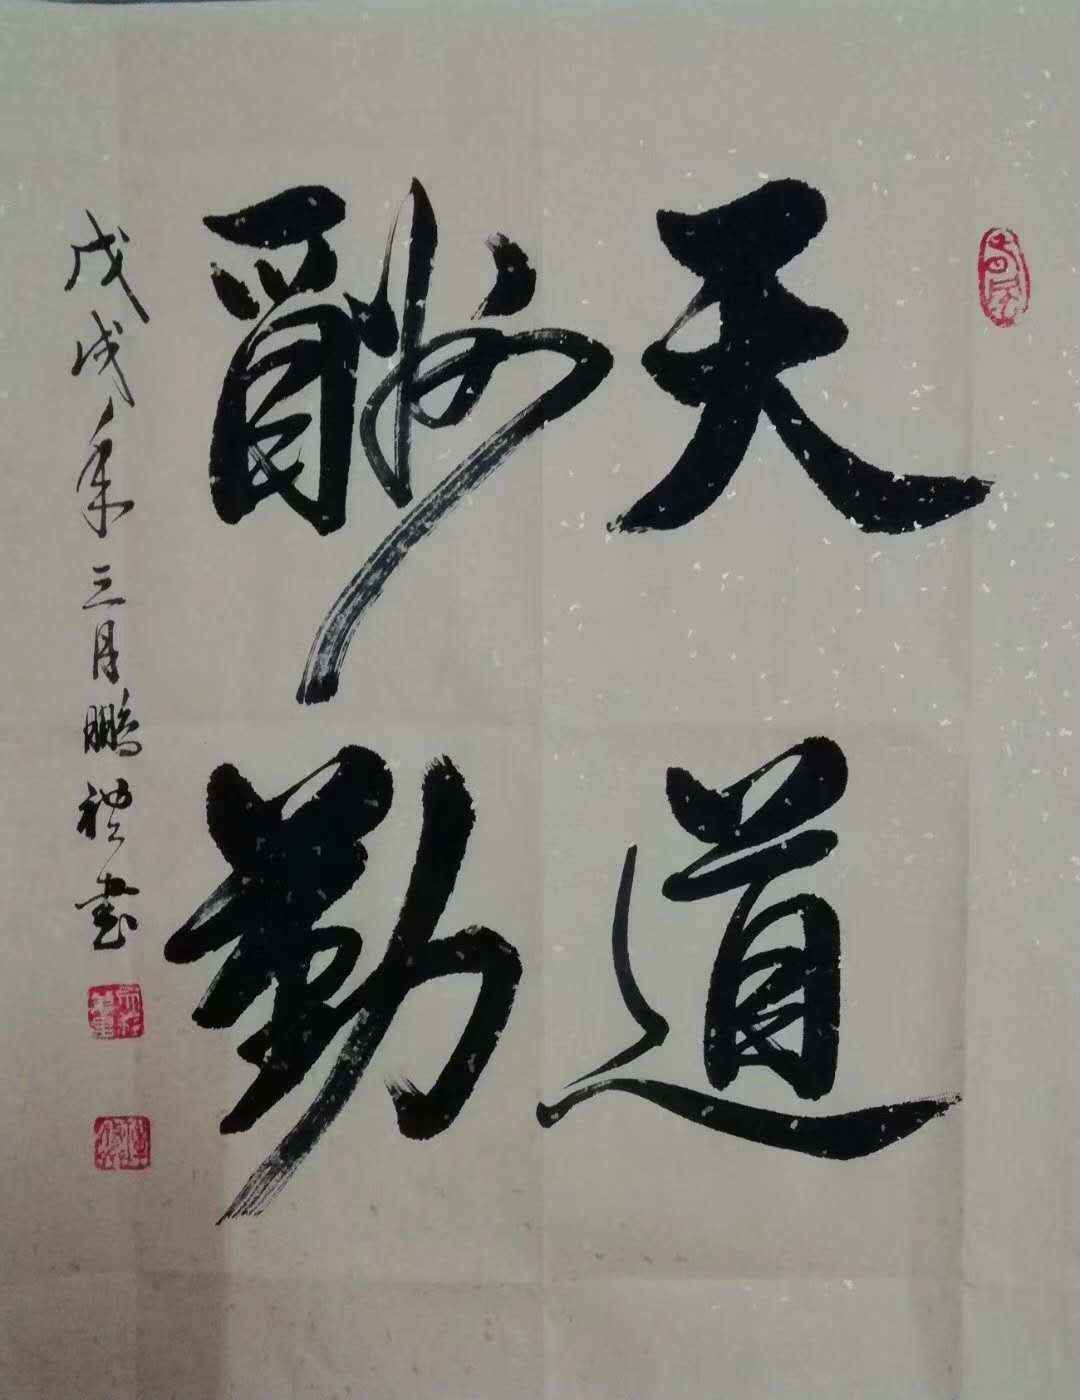 天道
酬勤
戊戌年三月鹏礼书